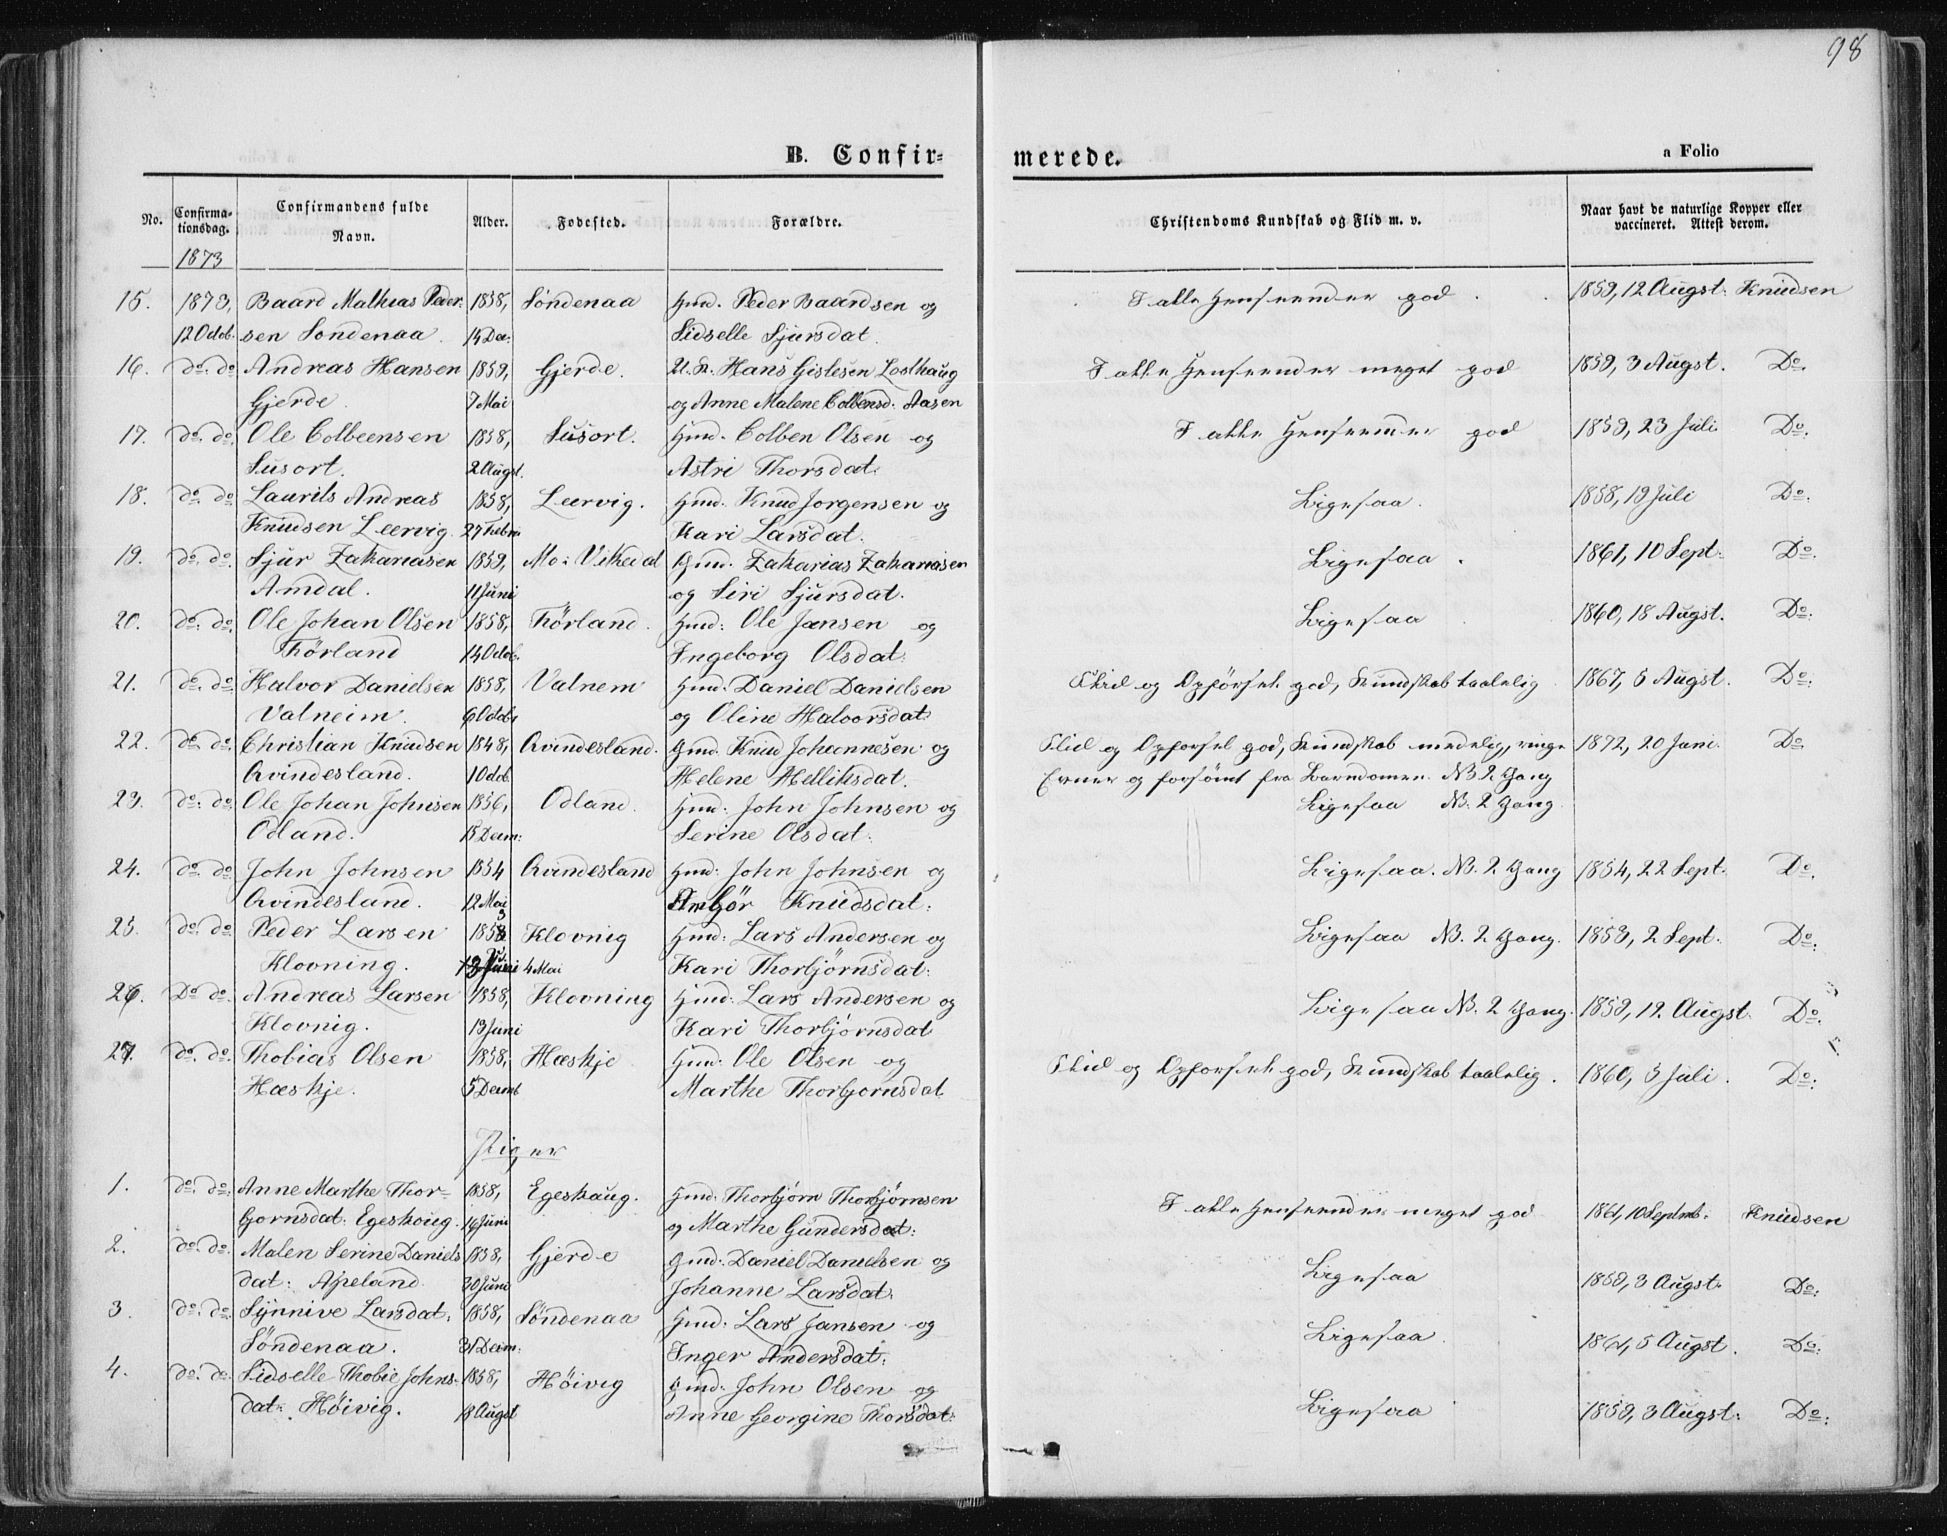 98
B. Confir-
merede.
a Folio
No. Confirma-tionsdag. Confirmandens fulde Navn. Alder. Fødested. Forældre. Christendoms Kundskab og Flid m. v. Naar havt de naturlige Kopper eller vaccineret. Attest derom.
1873
15. 1873, Baard Mathias Peder- 1858, Söndenaa Gmd. Peder Baardsen og I alle Henseender god. 1859, 12 Augst. Knudsen
12 Octob. sen Sondenaa. 14 Dec. Sidselle Sjursdat.
16. do. do Andreas Hansen 1859, Gjerde. U. K. Hans Gislesen Losthaug I alle Henseender meget god 1859, 3 Augst. Do.
Gjerde. 7 Mai og Anne Malene Colbensd. Aasen
17. do. do. Ole Colbeensen 1858, Susort. Gmd. Colben Olsen og I alle Henseender god 1859, 23 Juli Do.
Susort. 2 Augst. Astri Thorsdat.
18. do. do Laurits Andreas 1858, Leervig. Gmd. Knud Jorgensen og Ligesaa. 1858, 19 Juli Do.
Knudsen Leervig. 27 Febru Kari Larsdat.
19. do. do. Sjur Zakariasen 1859, Mo i Vikedal Gmd. Zakarias Zakariasen Ligesaa. 1861, 10 Sept. Do.
Amdal. 11 Juni og Siri Sjursdat.
20. do. do. Ole Johan Olsen 1858, Förland. Gmd. Ole Jansen og Ligesaa 1860, 18 Augst. Do.
Förland 14 Octob. Ingeborg Olsdat.
21. do. do. Halvor Danielsen 1858, Valnem Gmd. Daniel Danielsen Flid og Opförsel god, Kundskab taalelig 1867, 5 Augst. Do.
Valneim. 6 Octobr og Oline Halvorsdat.
22. do. do. Christian Knudsen 1848, Qvindesland. Gmd. Knud Johannesen og Flid og Opforsel god, Kundskab maadelig, ringe 1872, 20 Juni Do.
Qvindesland. 1 Octob Helene Helliksdat. Evner og forsömt fra Barndomen. NB 2 Gang
23. do. do. Ole Johan Johnsen 1856, Odland. Gmd. John Johnsen og Ligesaa NB. 2 Gang.
Odland. 15 Decm. Serine Olsdat.
24. do. do John Johnsen 1854 Qvindesland Gmd. John Johnsen og Ligesaa. NB. 2 Gang 1854, 22 Sept. Do.
Qvindesland. 12 Mai Anbjör Knudsdat.
25. do. do. Peder Larsen 1853 Klovnig Gmd. Lars Andersen og Ligesaa NB. 2 Gang. 1853, 2 Sept. Do.
Klovning. 4 Mai Kari Thorbjörnsdat.
26. Do do. Andreas Larsen 1858, Klovning Gmd. Lars Andersen og Ligesaa NB. 2 Gang. 1859, 12. Augst. Do.
Klovnig. 13 Juni Kari Thorbjörnsdat
27. do. do. Thobias Olsen 1858, Hæskje Gmd. Ole Olsen og Flid og Opforsel god, Kundskab taalelig. 1860, 3 Juli. Do.
Hæskje. 5 Decmb Marthe Thorbjornsdat.
Piger
1. do. do. Anne Marthe Thor- 1858, Egeskaug. Gmd. Thorbjörn Thorbjörnsen I alle Henseender meget god 1861, 10 Septmb. Knudsen
bjornsdat. Egeskoug. 14 Juni og Marthe Gundersdat.
2. do. do. Malen Serine Daniels 1858, Gjerde Gmd. Daniel Danielsen og Ligesaa 1859, 3 Augst. Do.
dat. Apeland. 30 Juni Johanne Larsdat.
3. do. do. Synnive Larsdat. 1858, Söndenaa Gmd. Lars Jansen og Ligesaa. 1861, 5 Augst. Do.
Söndenaa. 31 Decm. Inger Andersdat.
4. do. do. Sidselle Thobie Johns- 1858, Höivig Gmd. John Olsen og Ligesaa 1859, 3 Augst. Do.
dat. Höivig. 18 Augst Anne Georgine Thorsdat.